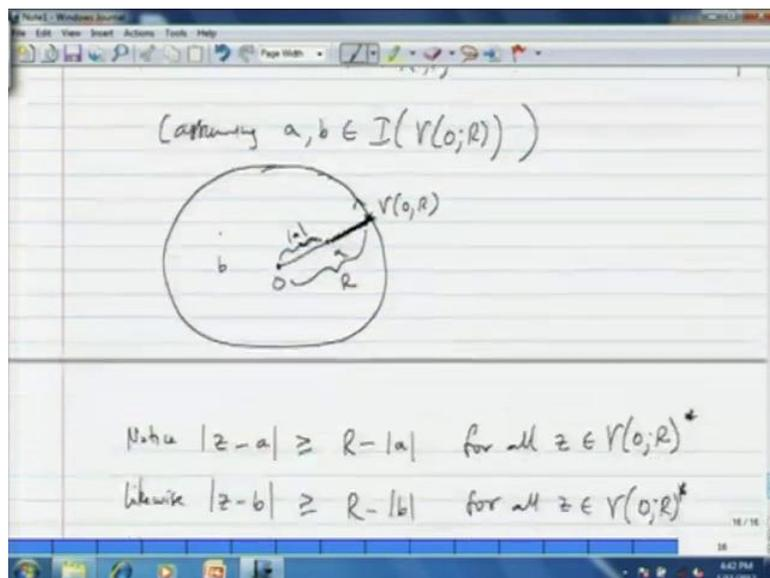 Note1 - Windows Journal
File Edit View Insert Actions Tools Help
Page Width
(assuming a, b ∈ I(γ(0;R)))
γ(0,R)
|a|
a
b
0
R
Notice |z-a| ≥ R-|a| for all z ∈ γ(0;R)*
Likewise |z-b| ≥ R-|b| for all z ∈ γ(0;R)*
16 / 16
16
4:42 PM